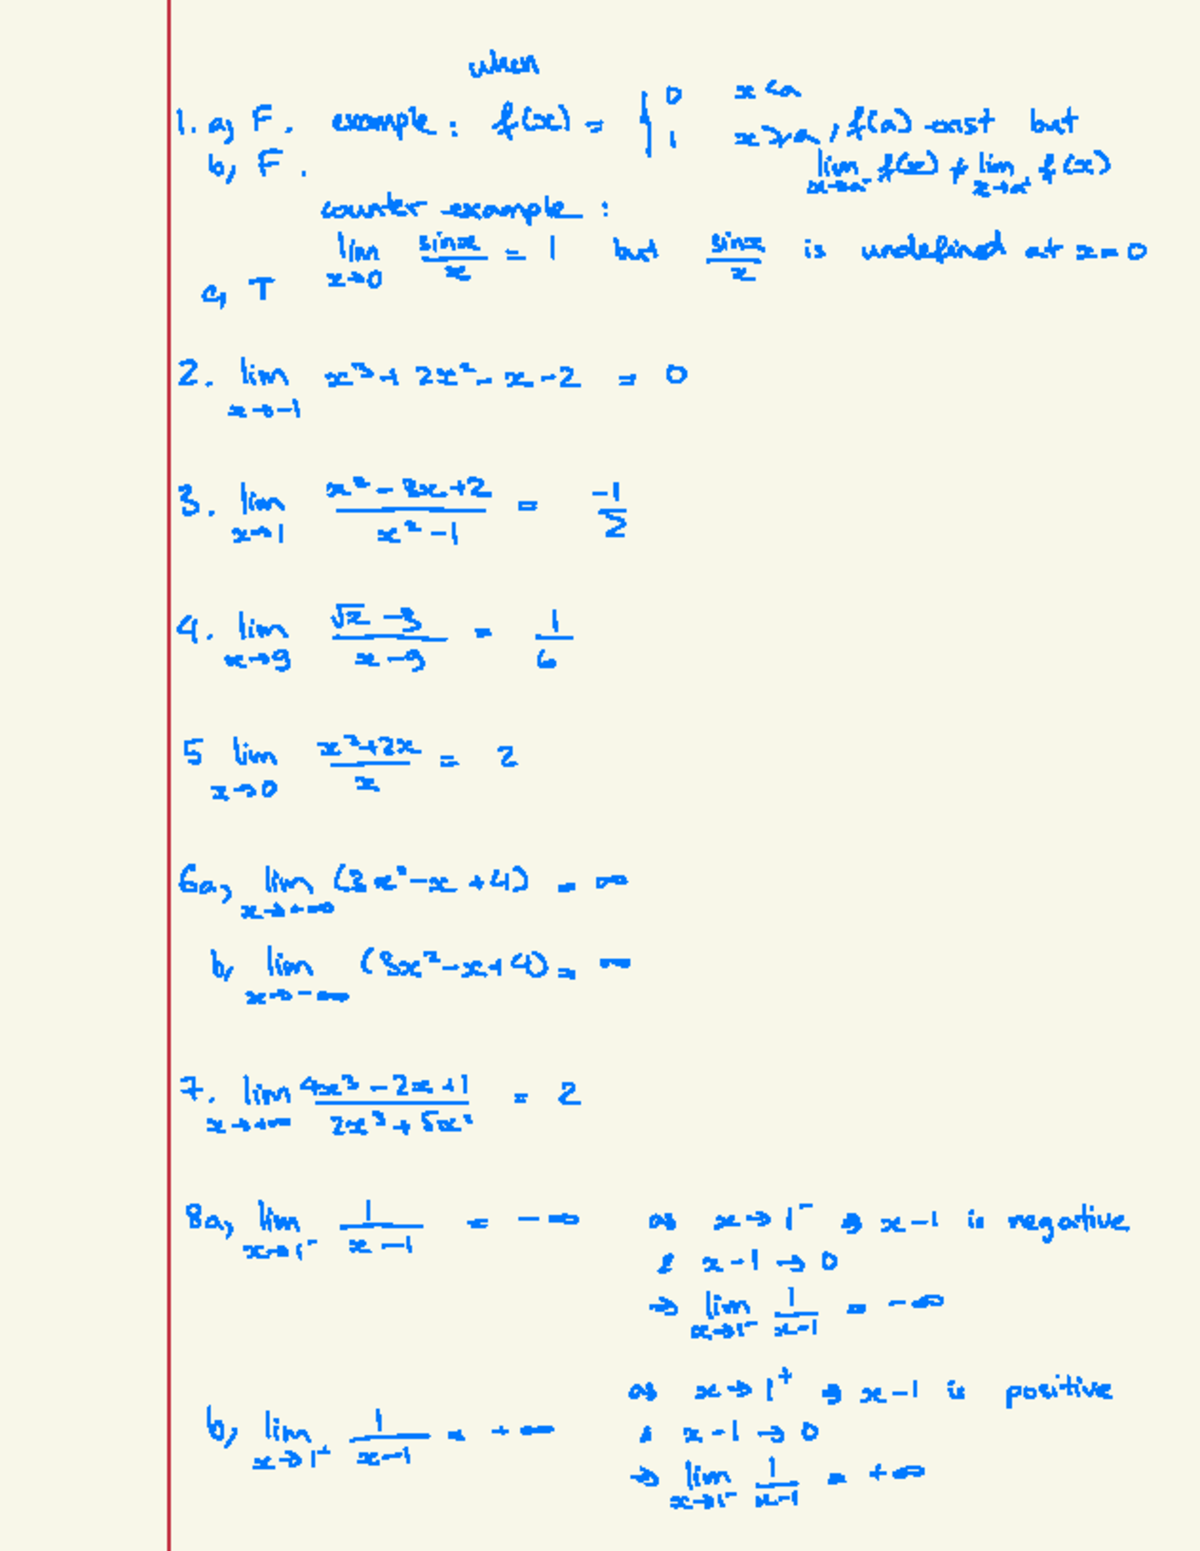 when
1. a, F. example: f(x) = { 0 x<a
1 x≥a, f(a) exist but
b, F. lim x→a⁻ f(x) ≠ lim x→a⁺ f(x)
counter example:
lim x→0 sinx/x = 1 but sinx/x is undefined at x=0
c, T
2. lim x→-1 x³+2x²-x-2 = 0
3. lim x→1 (x²-3x+2)/(x²-1) = -1/2
4. lim x→9 (√x-3)/(x-9) = 1/6
5 lim x→0 (x²+2x)/x = 2
6a, lim x→+∞ (3x²-x+4) = ∞
b, lim x→-∞ (3x²-x+4) = ∞
7. lim x→+∞ (4x³-2x+1)/(2x³+5x²) = 2
8a, lim x→1⁻ 1/(x-1) = -∞ as x→1⁻ ⇒ x-1 is negative
& x-1→0
→ lim x→1⁻ 1/(x-1) = -∞
as x→1⁺ ⇒ x-1 is positive
b, lim x→1⁺ 1/(x-1) = +∞ & x-1→0
→ lim x→1⁻ 1/(x-1) = +∞